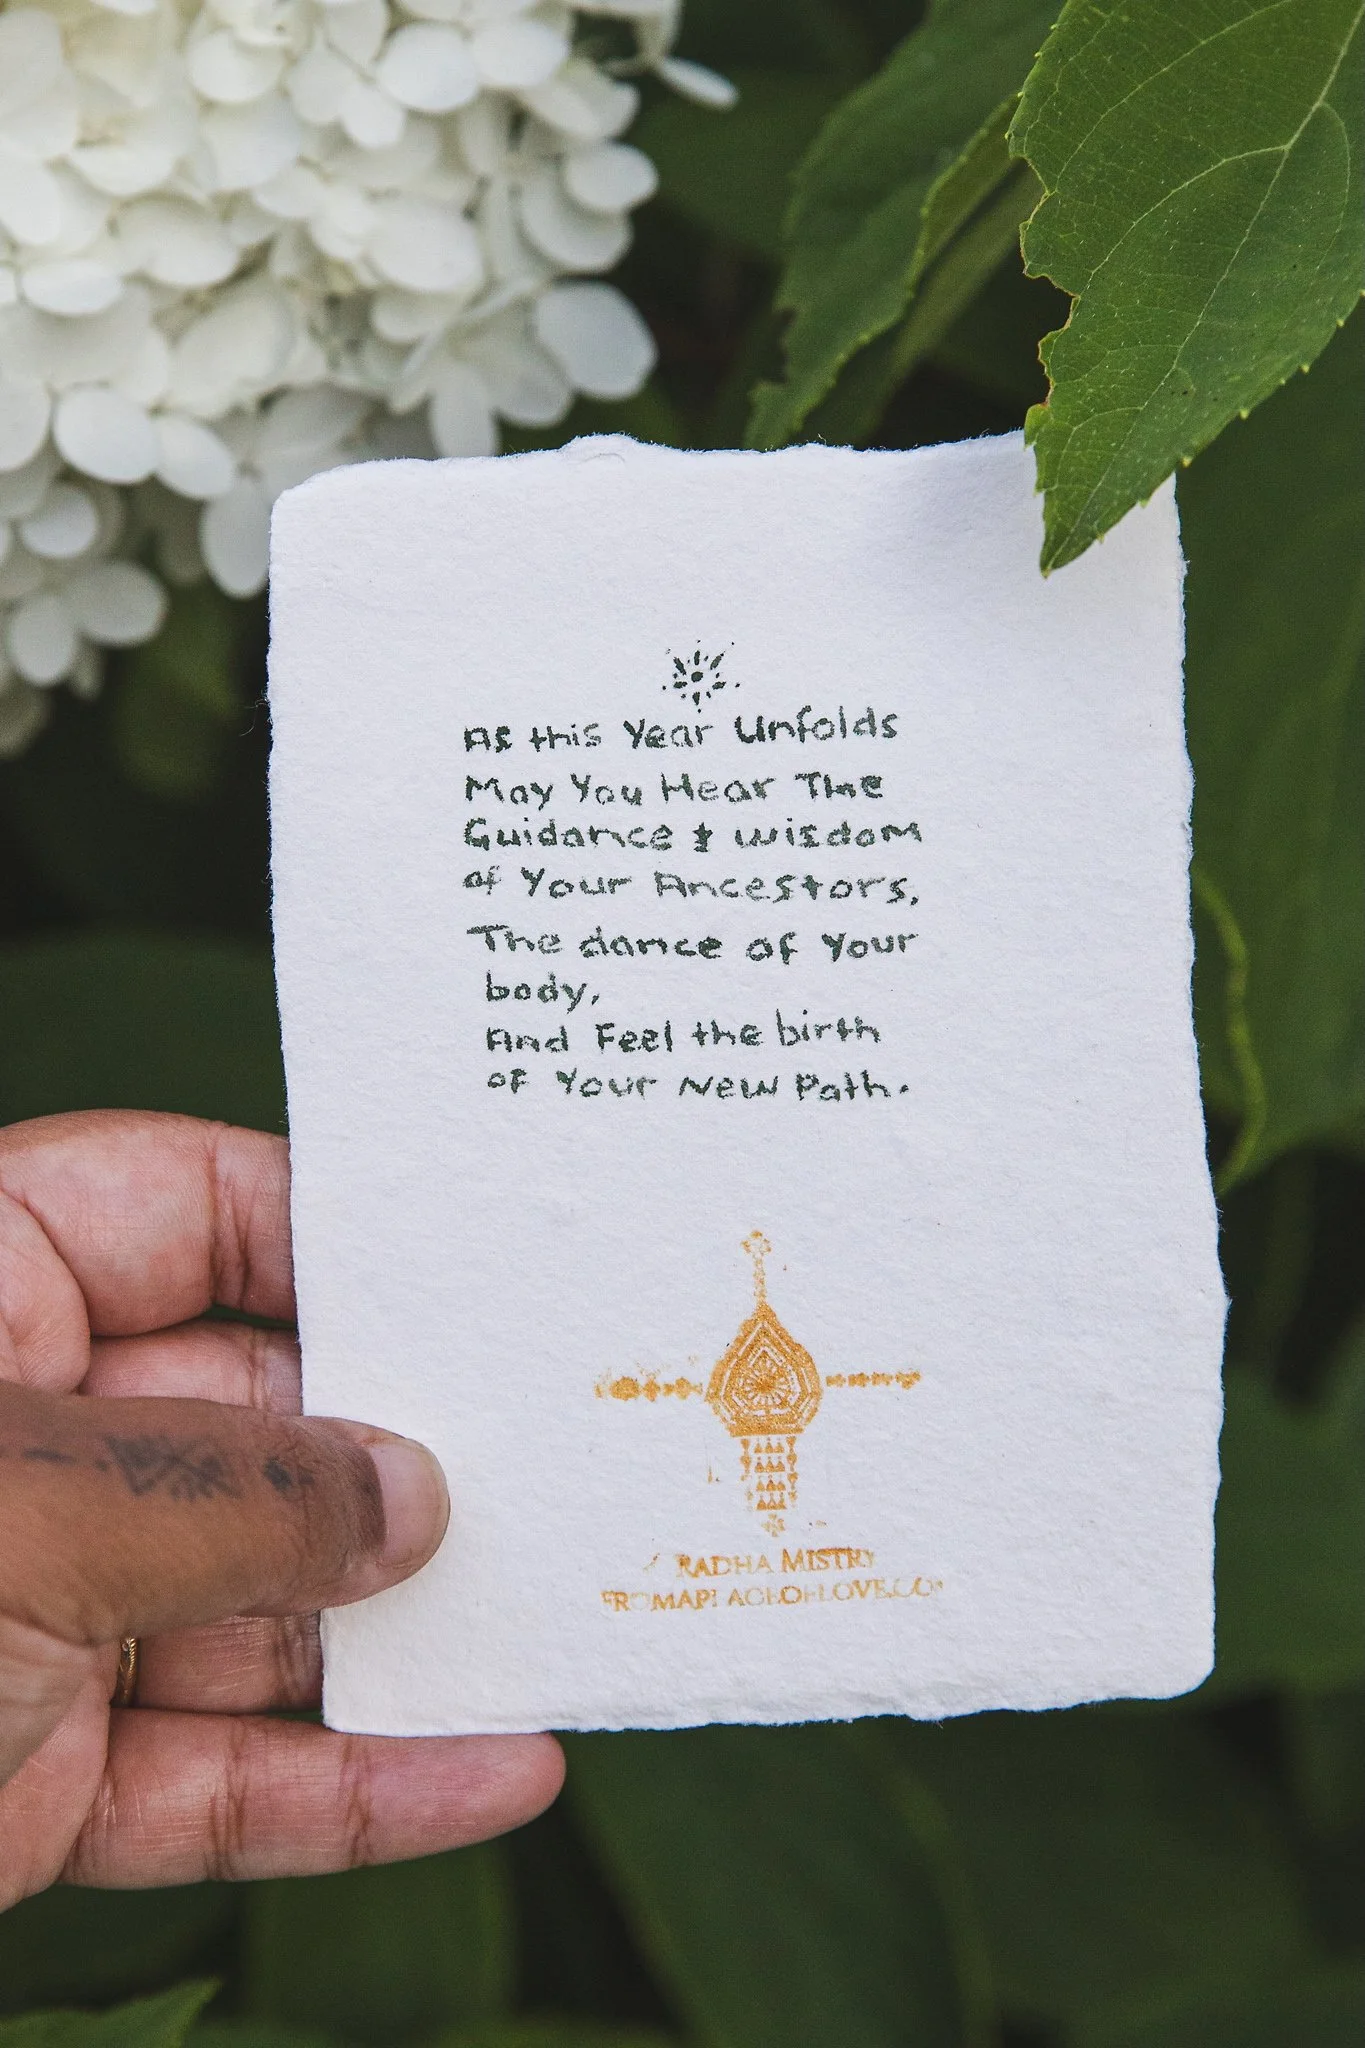 As this Year Unfolds
May You Hear The
Guidance & wisdom
of Your Ancestors,
The dance of Your
body,
And Feel the birth
of Your New Path.
RADHA MISTRY
FROMAPLACEOFLOVE.COM